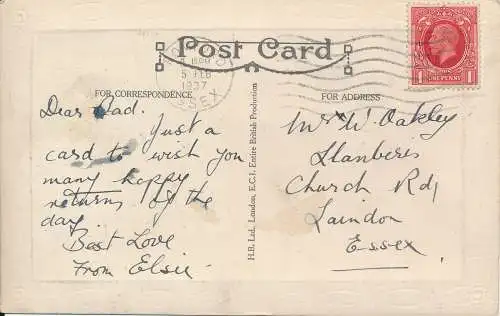 Post Card
5 FEB
1937
ESSEX
ONE PENNY
1 1
FOR CORRESPONDENCE
FOR ADDRESS
Dear Dad.
Just a
card to wish you
many happy
returns of the
day
Best Love
From Elsie
H.B. Ltd., London, E.C.1. Entire British Production
Mr W Oakley
Llanberis
Church Rd,
Laindon
Essex